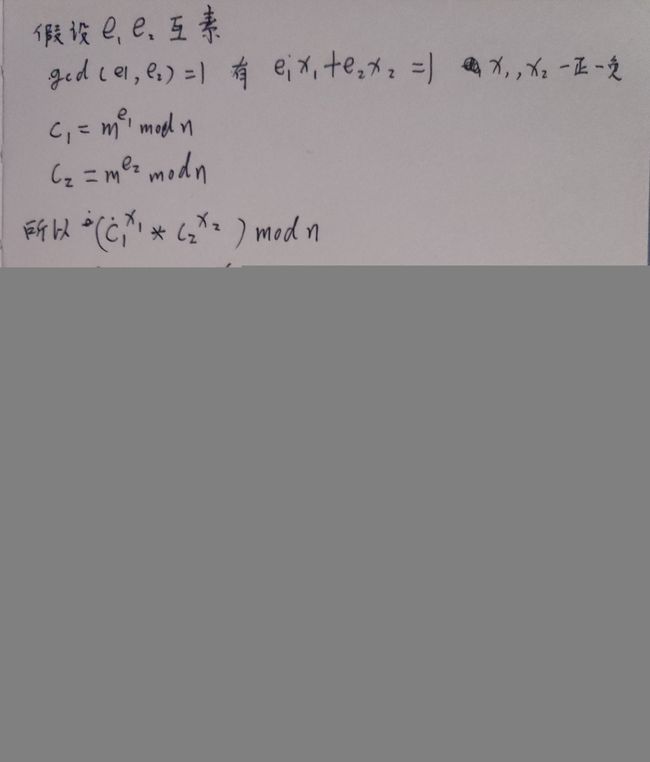 假设 e₁ e₂ 互素
gcd(e1, e₂) = 1 有 e₁x₁ + e₂x₂ = 1 x₁, x₂ 一正一负
c₁ = m^e₁ mod n
c₂ = m^e₂ mod n
所以 (c₁^x₁ * c₂^x₂) mod n